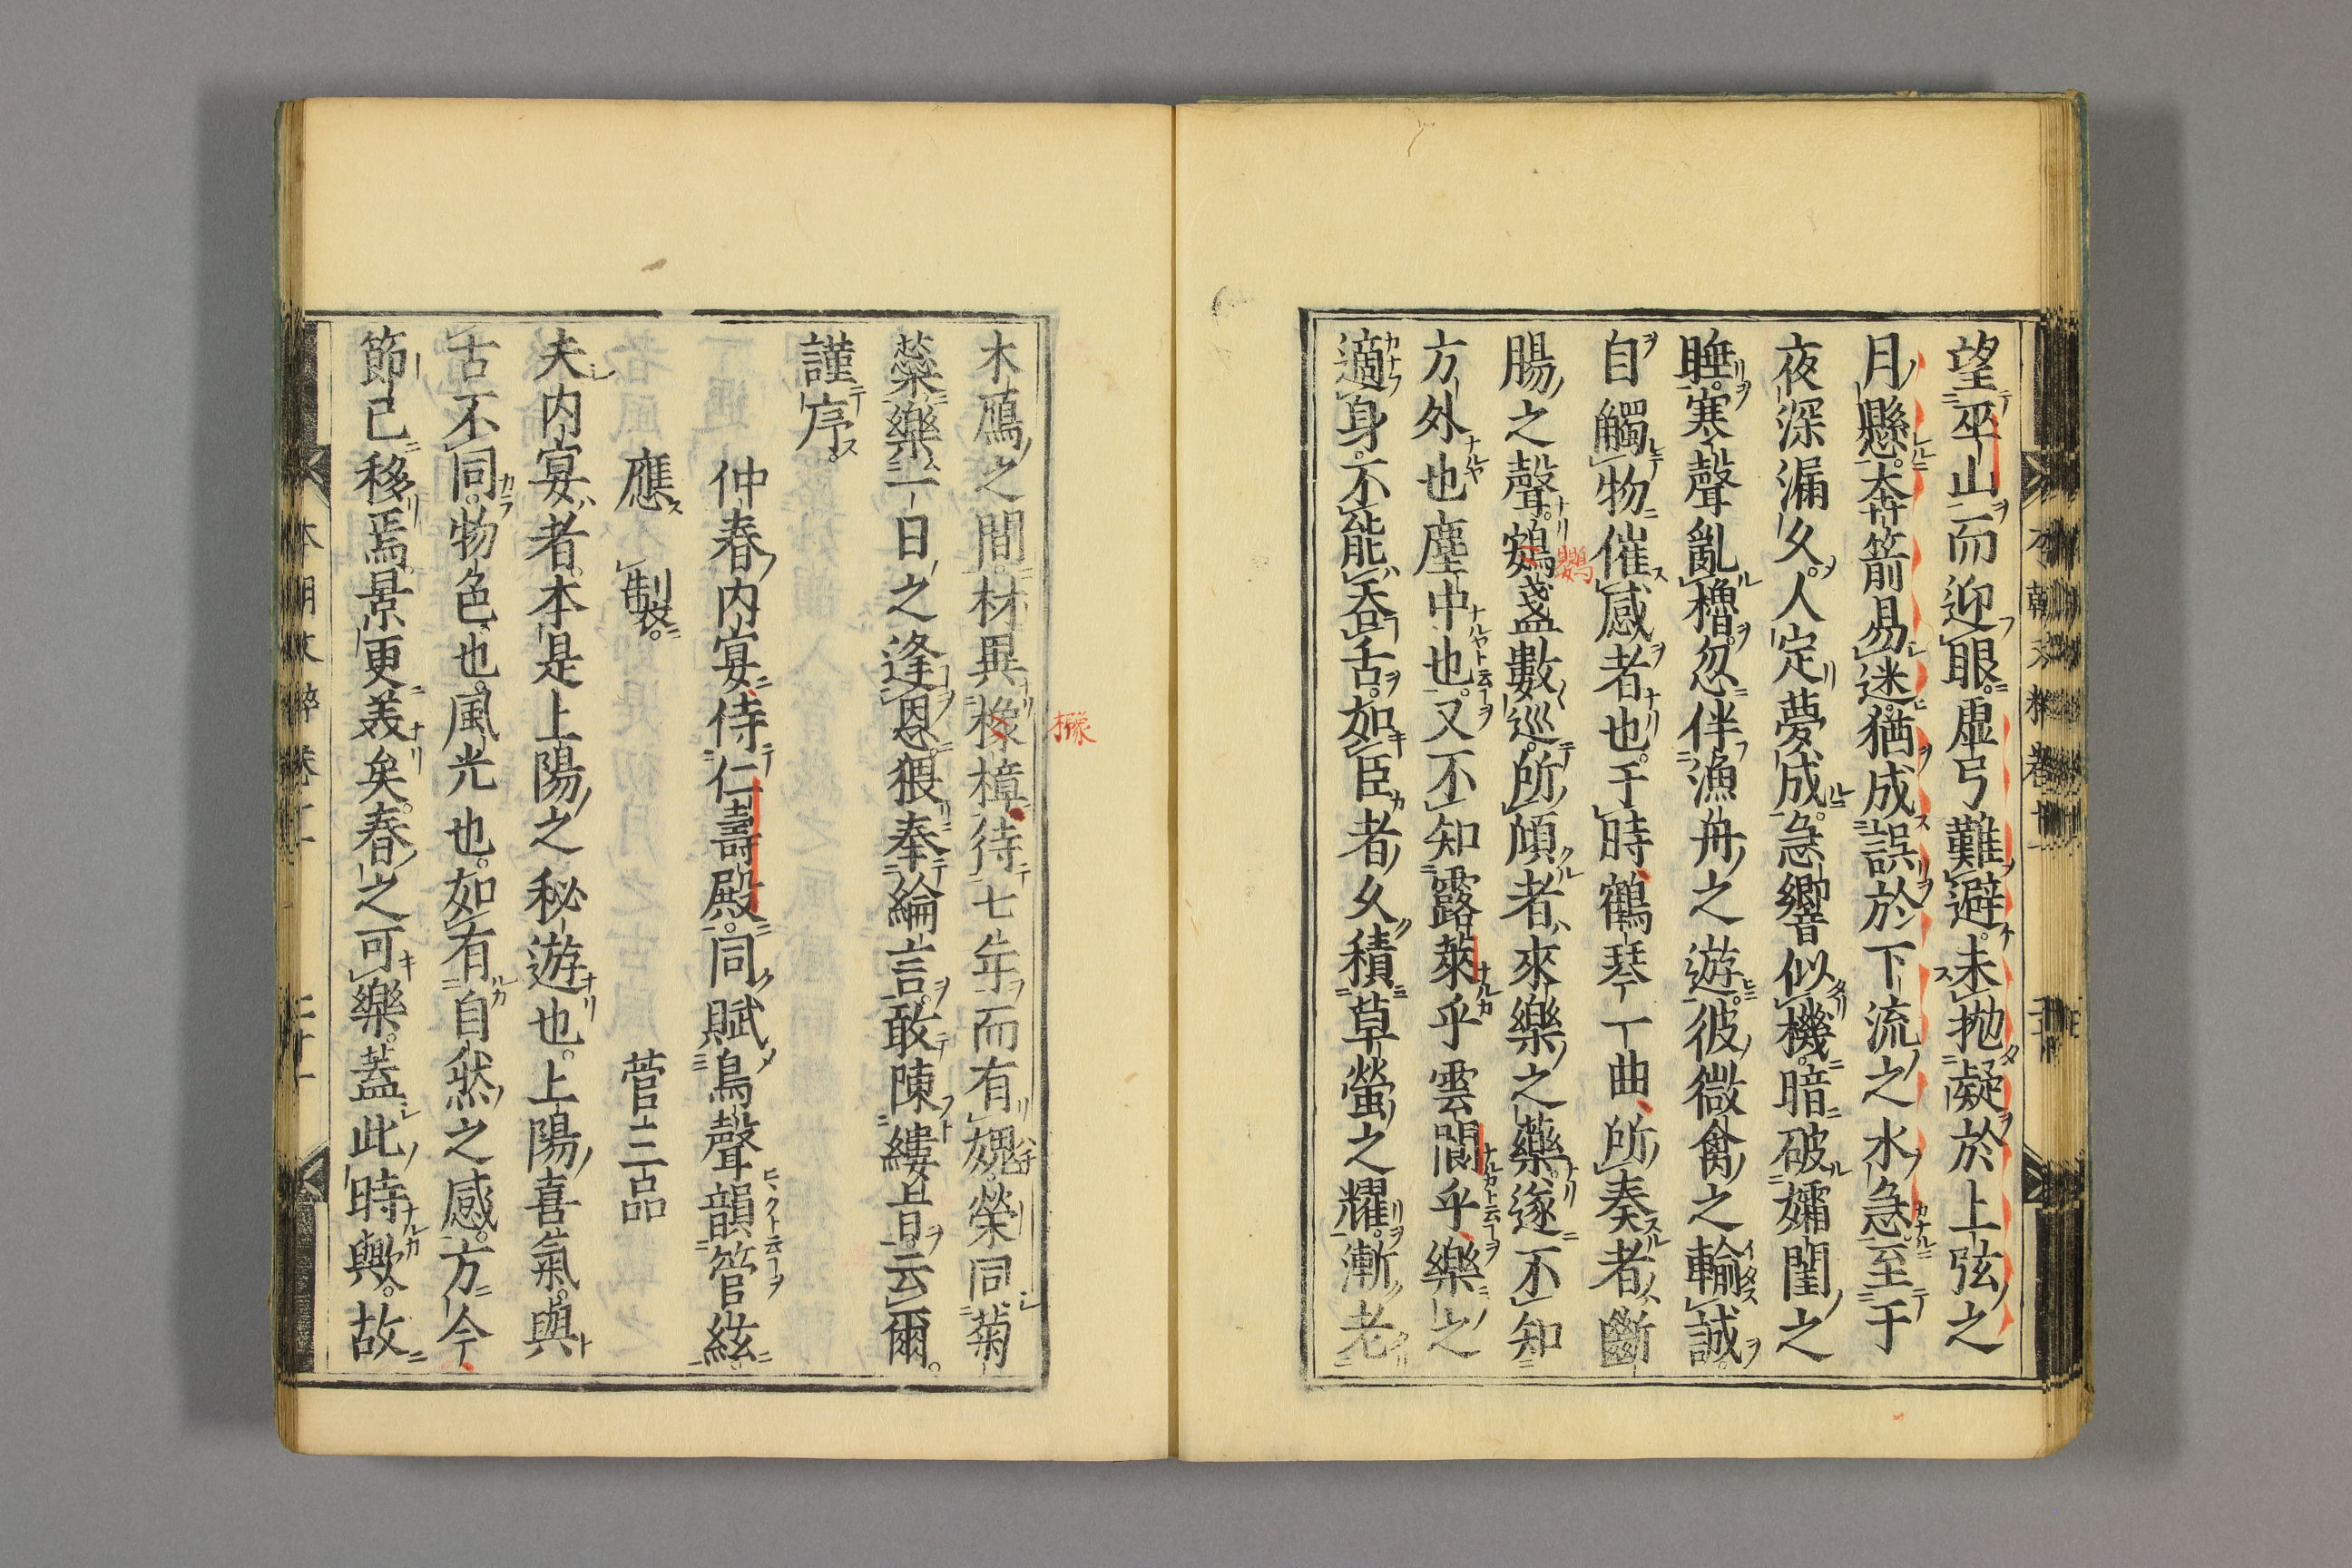 望巫山而迎眼。虚弓難避。未抛凝於上弦之
月懸。奔箭易迷。猶成誤於下流之水急。至于
夜深漏久。人定夢成。急響似機。暗破孀閨之
睡。寒聲亂櫓。忽伴漁舟之遊。彼微禽之輸誠。
自觸物催感者也。于時鶴琴一曲。所奏者斷
腸之聲。鵶盞數巡。所傾者來樂之藥。遂不知
方外也塵中也。又不知露萊乎雲閬乎。樂之
適身。不能吞舌。如臣者。久積草螢之耀。漸老
木鴈之間。材異櫲樟。待七年而有媿。榮同菊
蘂。樂一日之逢恩。猥奉綸言。敢陳縷旨。云爾。
謹序。
仲春内宴。侍仁壽殿。同賦鳥聲韻管絃
應製。 菅三品
夫内宴者。本是上陽之秘遊也。上陽喜氣。與
古不同。物色也。風光也。如有自然之感。方今
節已移焉。景更美矣。春之可樂。蓋此時歟。故
鸚
櫲
本朝文粹卷十一